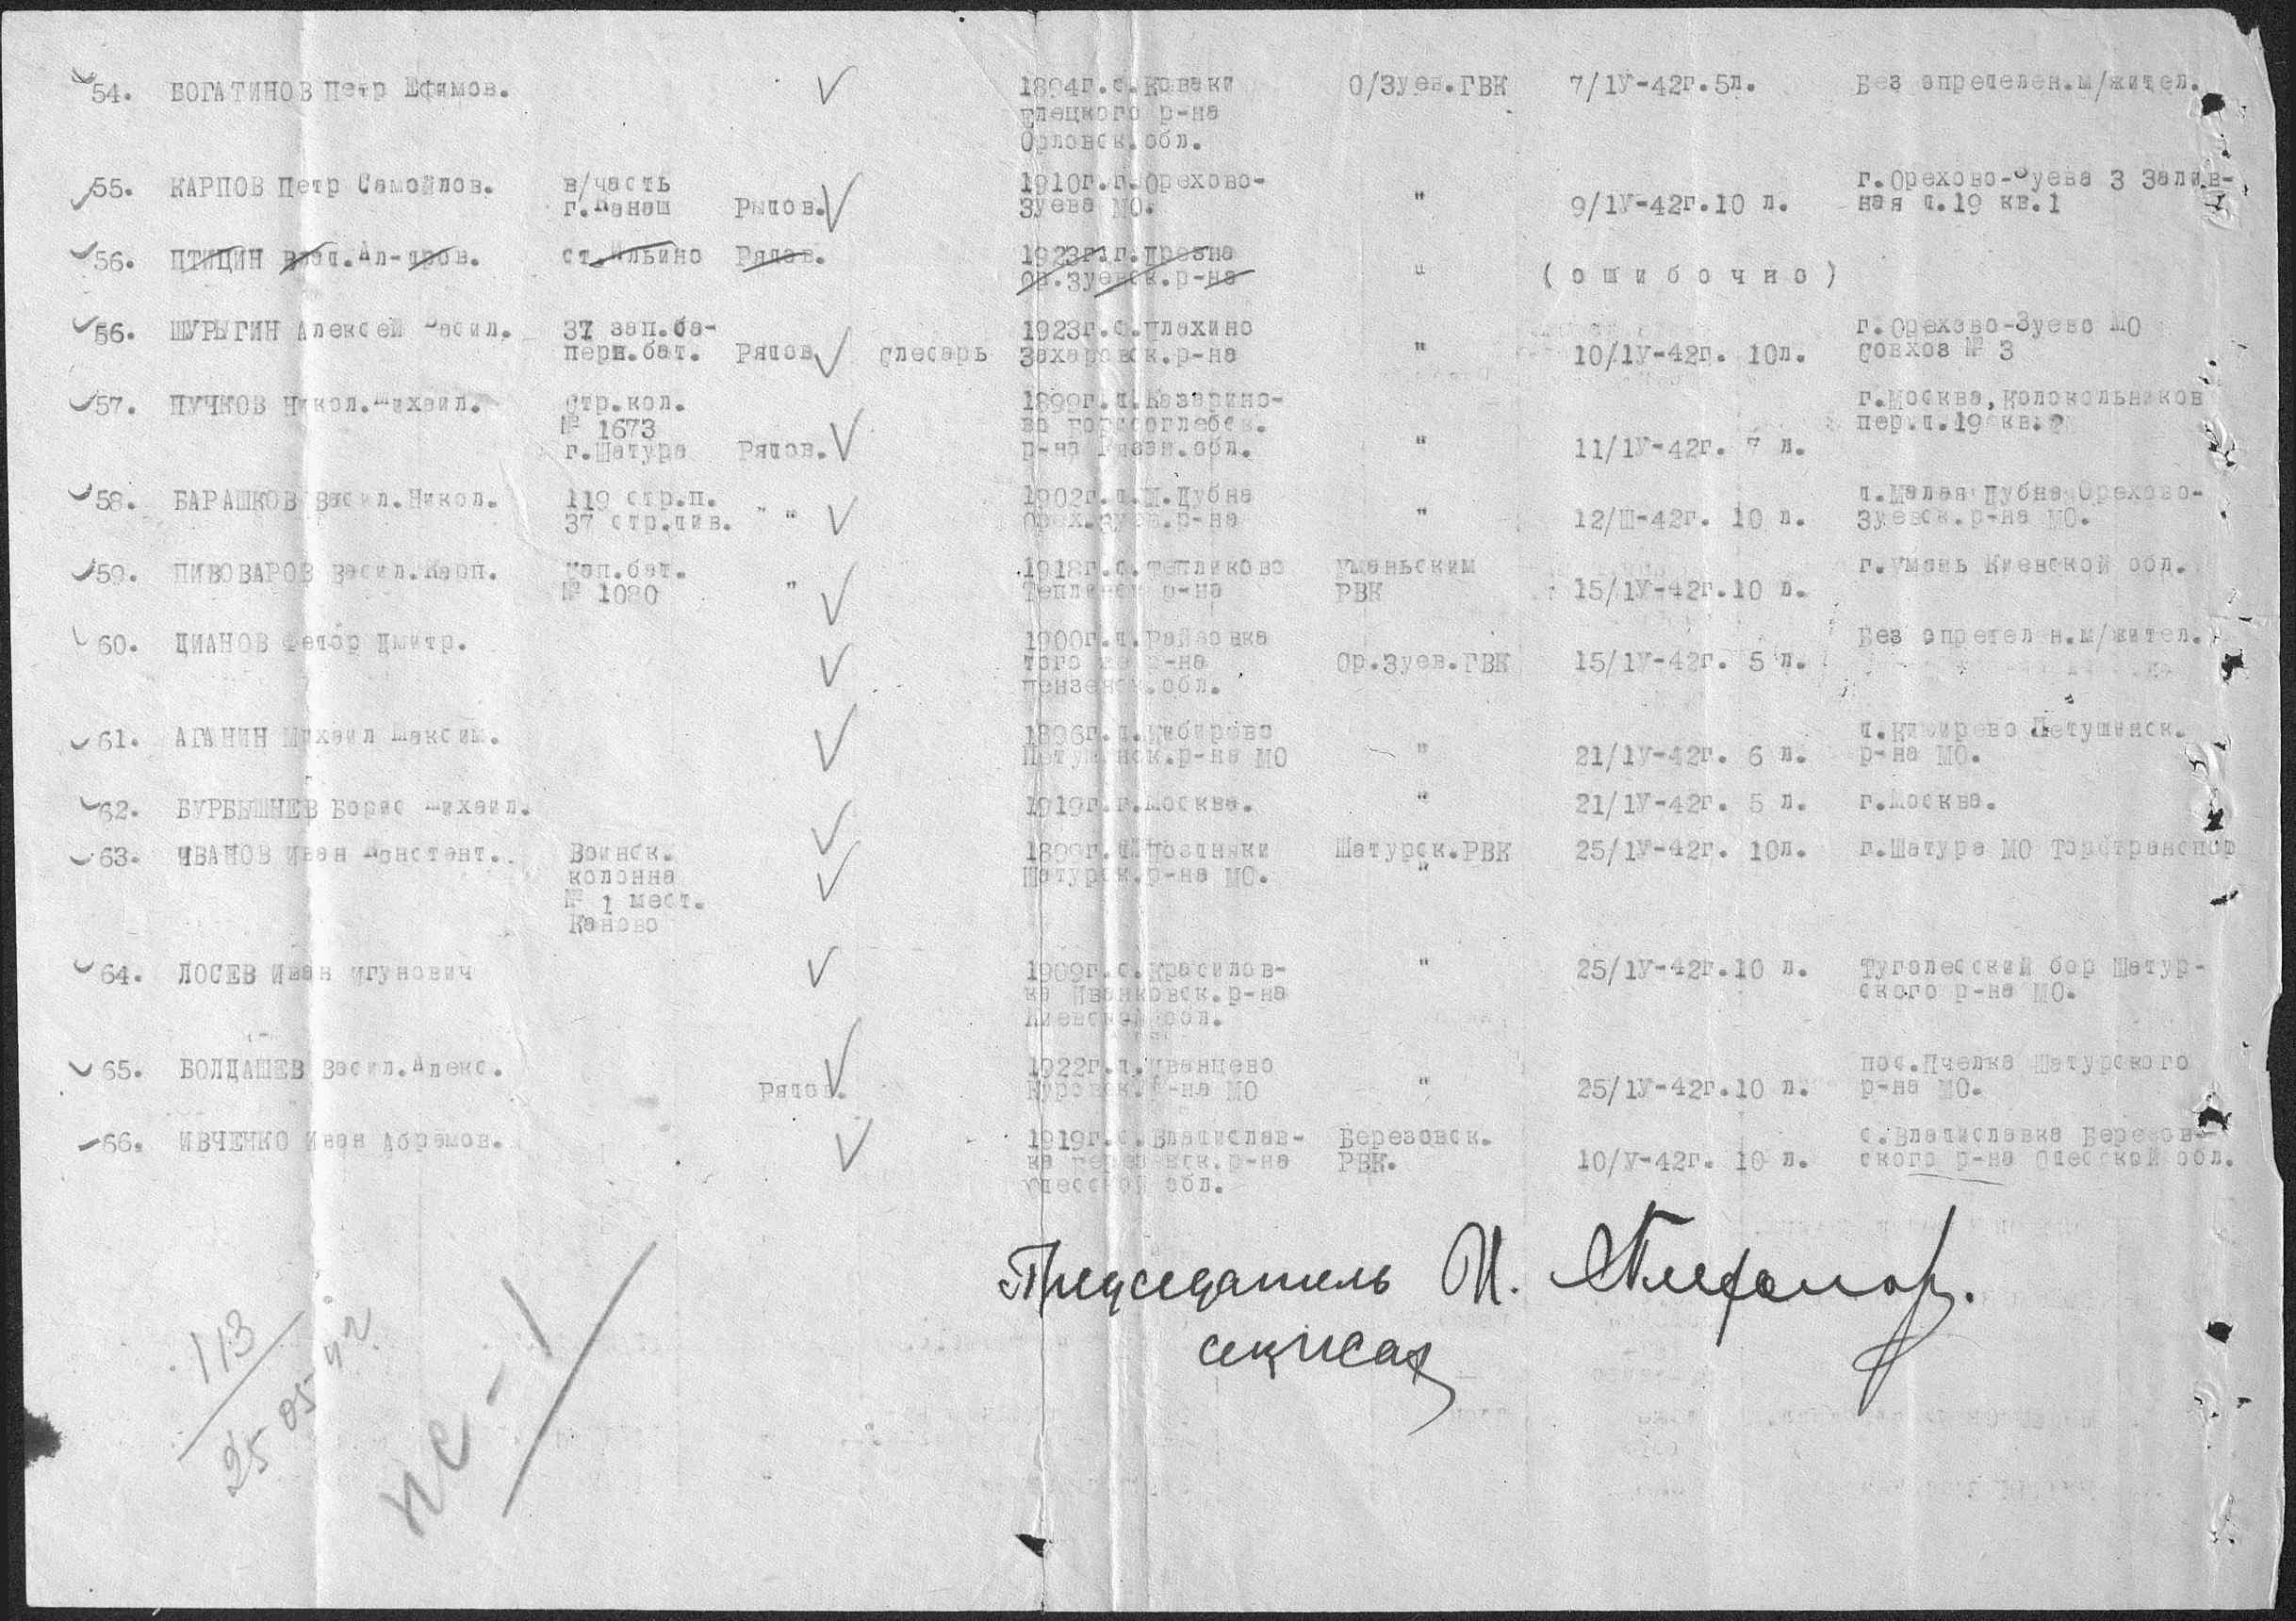 54. БОГАТИНОВ Петр Ефимов. 1894г.с.Коваки О/Зуев.ГВК 7/1У-42г.5л. Без определен.м/жител.
Елецкого р-на
Орловск.обл.
55. КАРПОВ Петр Самойлов. в/часть 1910г.г.Орехово- г.Орехово-Зуева 3 Залив-
г.Канаш Рядов. Зуева МО. " 9/1У-42г.10 л. ная д.19 кв.1
56. ПТИЦИН Влад.Ал-дров. ст.Ильино Рядов. 1923г.г.Дрезна
Ор.Зуевск.р-на " (ошибочно)
56. ШУРЫГИН Алексей Васил. 37 зап.ба- 1923г.с.Плахино г.Орехово-Зуево МО
перн.бат. Рядов. Слесарь Захаровск.р-на " 10/1У-42г. 10л. Совхоз № 3
57. ПУЧКОВ Никол.Михаил. Стр.кол. 1899г.д.Казарино- г.Москва,Колокольников
№ 1673 во пер.д.19 кв.2
г.Шатура Рядов. р-на Рязан.обл. " 11/1У-42г. 7 л.
58. БАРАШКОВ Васил.Никол. 119 стр.п. 1902г.д.М.Дубна д.Малая Дубна Орехово-
37 стр.див. " " Орех.Зуев.р-на " 12/Ш-42г. 10 л. Зуевск.р-на МО.
59. ПИВОВАРОВ Васил.Карп. 1918г.с.Тепликово Уманьским г.Умань Киевской обл.
№ 1080 " р-на РВК 15/1У-42г.10 л.
60. ДИАНОВ Федор Дмитр. 1900г.д. Без определен.м/жител.
того же р-на Ор.Зуев.ГВК 15/1У-42г. 5 л.
Пензенск.обл.
61. АГАНИН Михаил Максим. 1896г.д.Кибирево д.Кибирево Петушинск.
Петушинск.р-на МО " 21/1У-42г. 6 л. р-на МО.
62. БУРБЫШНЕВ Борис Михаил. 1919г.г.Москва. " 21/1У-42г. 5 л. г.Москва.
63. ИВАНОВ Иван Констант. Воинск. 1899г.д.Поздняки Шатурск.РВК 25/1У-42г. 10л. г.Шатура МО Торфтранспор
колонна Шатурск.р-на МО. "
№ 1 мест.
Каново
64. ЛОСЕВ Иван Игунович 1909г.с.Красилов- " 25/1У-42г.10 л. Туголесский бор Шатур-
ка Иванковск.р-на ского р-на МО.
Киевской обл.
65. БОЛДАШЕВ Васил.Алекс. 1922г.д.Иванцево пос.Пчелка Шатурского
Рядов. Куровск.р-на МО " 25/1У-42г.10 л. р-на МО.
66. ИВЧЕНКО Иван Абрамов. 1919г.с.Владислав- Березовск. с.Владиславка Березов-
ка Березовск.р-на РВК. 10/У-42г. 10 л. ского р-на Одесской обл.
Одесской обл.
Председатель И.
113
25 05 42
нс-1